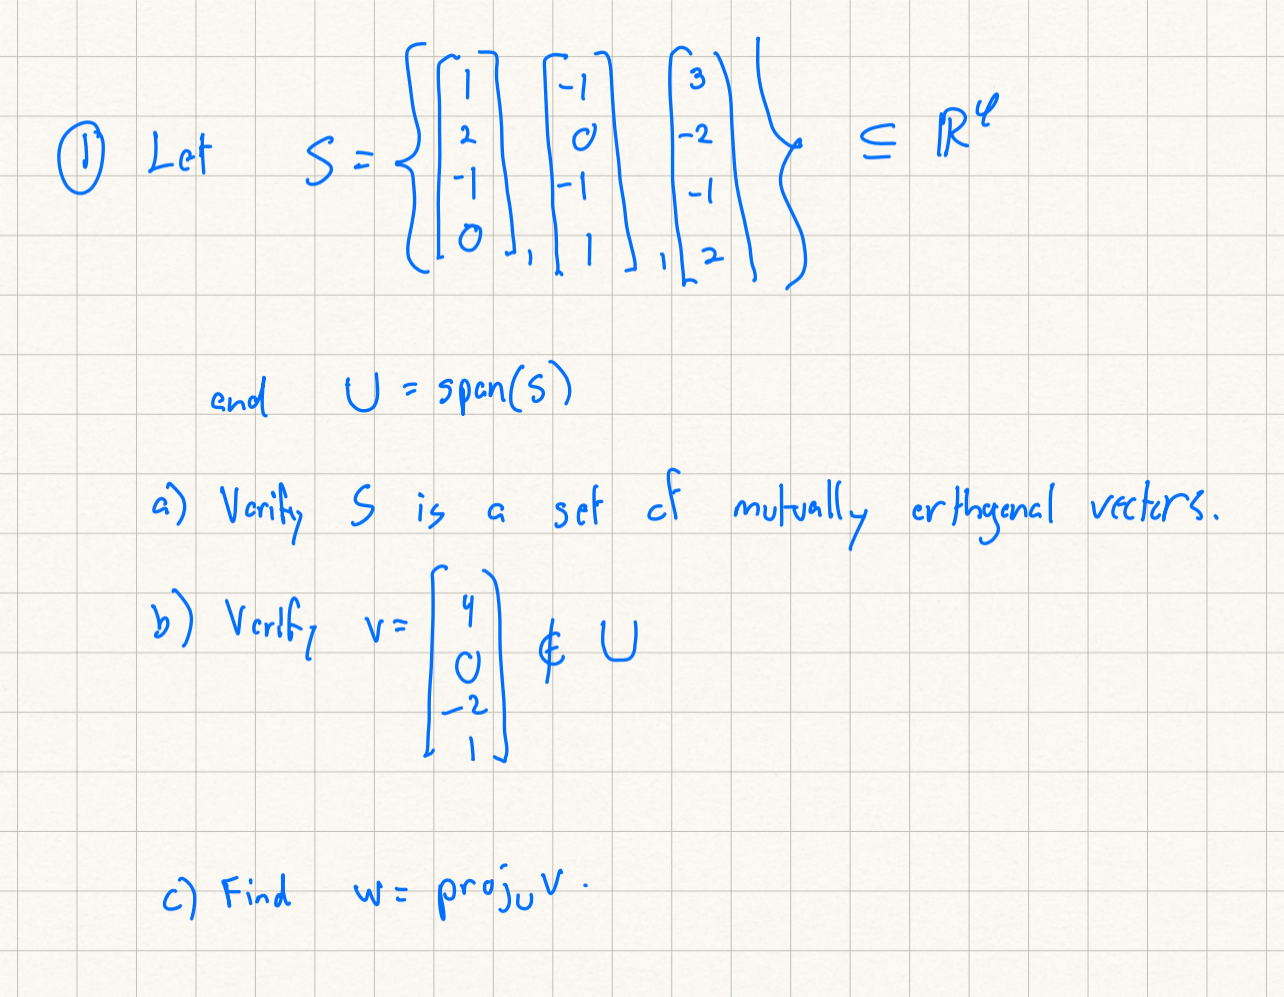 ① Let S = { [1 2 -1 0], [-1 0 -1 1], [3 -2 -1 2] } ⊆ ℝ⁴
and U = span(S)
a) Verify S is a set of mutually orthgonal vectors.
b) Verify v = [4 0 -2 1] ∉ U
c) Find w = proj_U v.